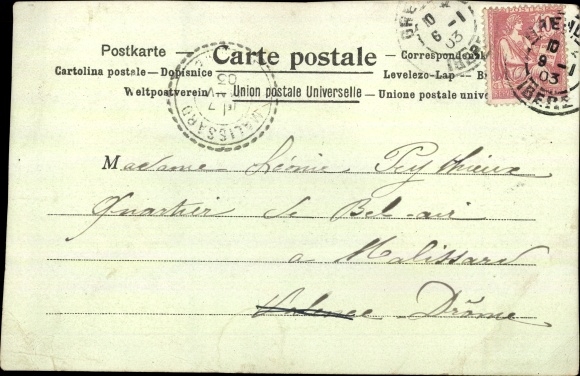 Postkarte — Carte postale — Correspondenz
Cartolina postale — Dopisnice — Levelezo-Lap — B
Weltpostverein — Union postale Universelle — Unione postale unive
GRENOBLE
10
6 - 1
03
GRENOBLE
10
9 - 1
03
ISERE
MALISSARD
7
JANV
03
Madame Léonie
Quartier de Bel-air
a Malissard
Valence Drôme